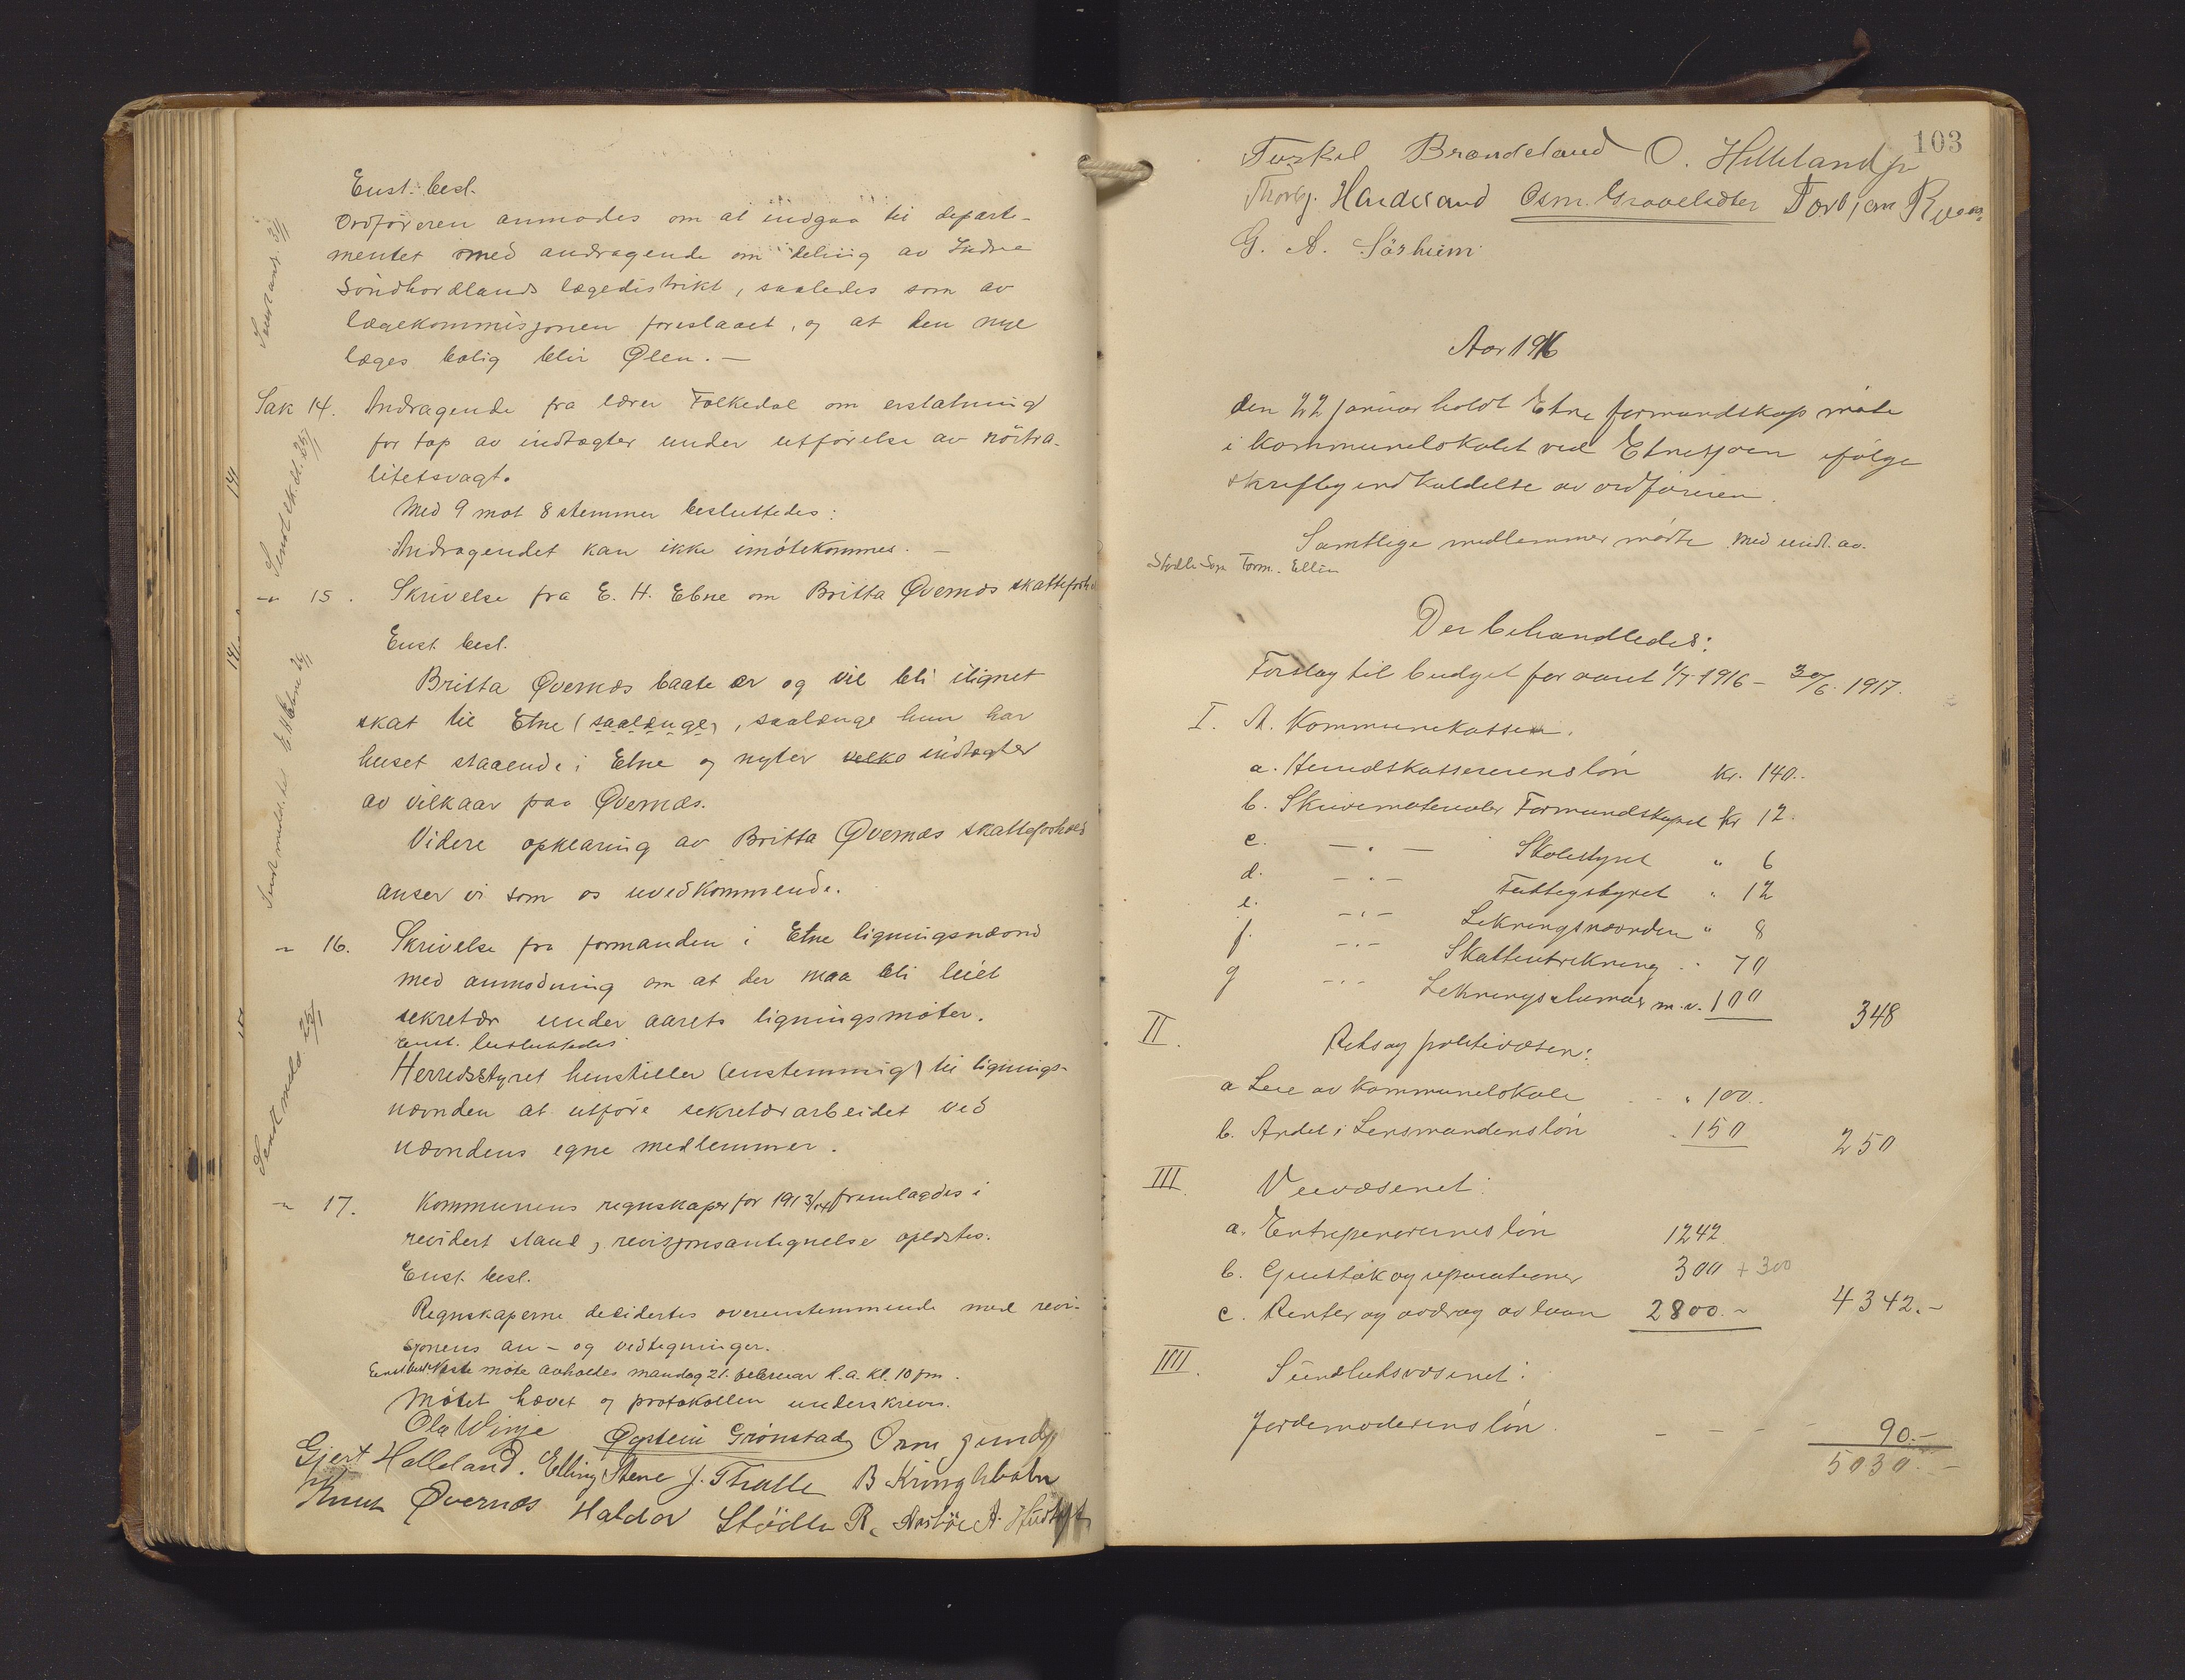 Enst. besl.
Ordföreren anmodes om at indgaa til departe-
mentet med andragende om deling av Indre
Söndhordlands lægedistrikt, saaledes som av
lægekommisjonen foreslaaet, og at den nye
læges bolig blir Ølen. —
Sak 14. Andragende fra lærer Folkedal om erstatning
for tap av indtægter under utförelse av nöitra-
litetsvagt.
Med 9 mot 8 stemmer besluttedes:
Andragendet kan ikke imötekommes. —
-"- 15. Skrivelse fra E. H. Etne om Britta Øvernæs skatteforh
Enst besl.
Britta Øvernæs baate er og vil bli ilignet
skat til Etne (saalænge), saalænge hun har
huset staaende i Etne og nyter velko indtægter
av vilkaar paa Øvernæs.
Videre opklaring av Britta Øvernæs skatteforhold
anser vi som os uvedkommende.
" 16. Skrivelse fra formanden i Etne ligningsnævnd
med anmodning om at der maa bli leiet
sekretær under aarets ligningsmöter.
Enst. besluttedes
Herredsstyret henstiller (enstemmig) til lignings-
nævnden at utföre sekretærarbeidet ved
nævndens egne medlemmer.
" 17. Kommunens regnskaper for 1913/14 fremlagdes i
revidert stand, revisjonsantegnelse oplæstes.
Enst. besl.
Regnskaperne desidertes overensstemmende med revi-
sjonens an- og vedtegninger.
Enst besl. Næste möte avholdes mandag 21. februar d.a. kl. 10 fm.
Mötet hævet og protokollen underskreven.
Ola Winje Øystein Grönstad Orm Grindj
Gjert Halleland. Elling Stene J. Tralle B Kringlebotn
Knut Øvernæs Haldor Stödle R. Aarböe A.
Sendt ansk. 31/1
Sendt utsk. dt. 25/1
Sendt meddt. til E. H. Etne 26/1
Sendt medd 25/1
103
Torkel Brandeland O. Hilleland jr
Thorbj. Handeland Osm. Gravelsæter Torbjørn
G. A. Sörheim
Aar 1916
den 22 januar holdt Etne formandskap möte
i kommunelokalet ved Etnesjøen ifölge
skriftlig indkaldelse av ordföreren.
Samtlige medlemmer mödte med undt. av.
Der behandledes:
Forslag til budget for aaret 1/7 1916 - 30/6 1917.
I. A. Kommunekassen.
a. Herredskassererens lön kr. 140..
b. Skrivematerialer Formandskapet kr 12.
c. — " — Skolestyret " 6
d. — " — Fattigstyret " 12
e. — " — Lekningsnævnden " 8
f. — " — Skatteutrekning " 70
g — " — m.v. 100 348
II. Rets og politivæsen:
a Leie av kommunelokale " 100..
b. Andel i Lensmandens lön " 150 250
III. Veivæsenet:
a. Entreprenørernes lön 1242
b. Grustak og reparationer 300 + 300
c. Renter og avdrag av laan 2800.- 4342.-
IIII. Sundhetsvæsenet:
Jordemoderens lön. — — — 90.-
5030.-